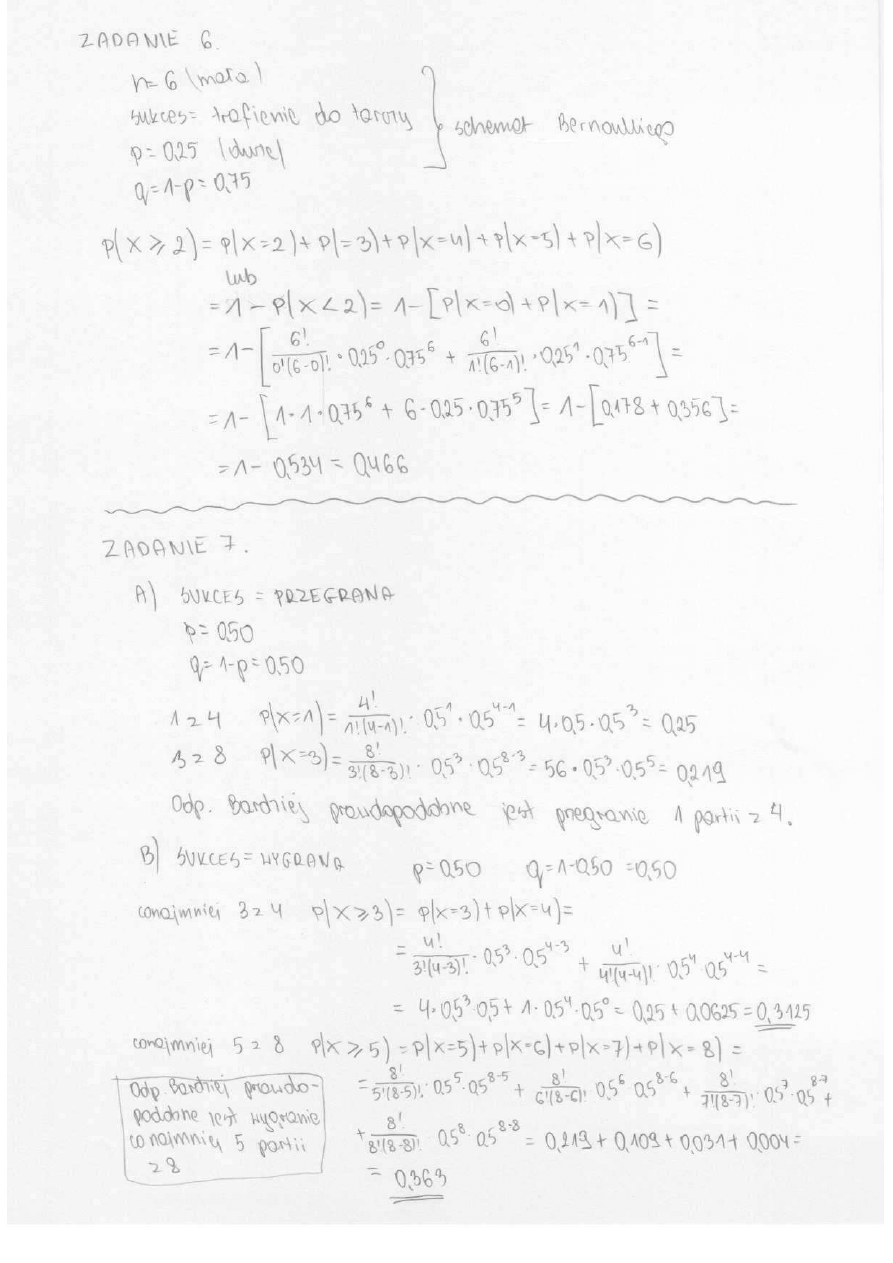 ZADANIE 6.
n=6 (mała)
sukces= trafienie do tarczy
p=0,25 (duże)
q=1-p=0,75
schemat Bernoulliego
P(X≥2)= P(X=2)+P(=3)+P(X=4)+P(X=5)+P(X=6)
lub
=1-P(X<2)= 1-[P(X=0)+P(X=1)]=
=1-[6!/0!(6-0)! · 0,25⁰·0,75⁶ + 6!/1!(6-1)! · 0,25¹·0,75⁶⁻¹]=
=1-[1·1·0,75⁶ + 6·0,25·0,75⁵]= 1-[0,178+0,356]=
=1-0,534=0,466
ZADANIE 7.
A) SUKCES = PRZEGRANA
p=0,50
q=1-p=0,50
1 z 4 P(X=1)= 4!/1!(4-1)! · 0,5¹·0,5⁴⁻¹= 4·0,5·0,5³= 0,25
3 z 8 P(X=3)= 8!/3!(8-3)! · 0,5³·0,5⁸⁻³= 56·0,5³·0,5⁵= 0,219
Odp. Bardziej prawdopodobne jest przegranie 1 partii z 4.
B) SUKCES=WYGRANA p=0,50 q=1-0,50=0,50
conajmniej 3 z 4 P(X≥3)= P(X=3)+P(X=4)=
= 4!/3!(4-3)! · 0,5³·0,5⁴⁻³ + 4!/4!(4-4)! · 0,5⁴·0,5⁴⁻⁴ =
= 4·0,5³·0,5+1·0,5⁴·0,5⁰= 0,25+0,0625=0,3125
conajmniej 5 z 8 P(X≥5)=P(X=5)+P(X=6)+P(X=7)+P(X=8)=
= 8!/5!(8-5)! · 0,5⁵·0,5⁸⁻⁵ + 8!/6!(8-6)! · 0,5⁶·0,5⁸⁻⁶ + 8!/7!(8-7)! · 0,5⁷·0,5⁸⁻⁷ +
+ 8!/8!(8-8)! · 0,5⁸·0,5⁸⁻⁸ = 0,219+0,109+0,031+0,004=
= 0,363
Odp. Bardziej prawdo-
podobne jest wygranie
co najmniej 5 partii
z 8